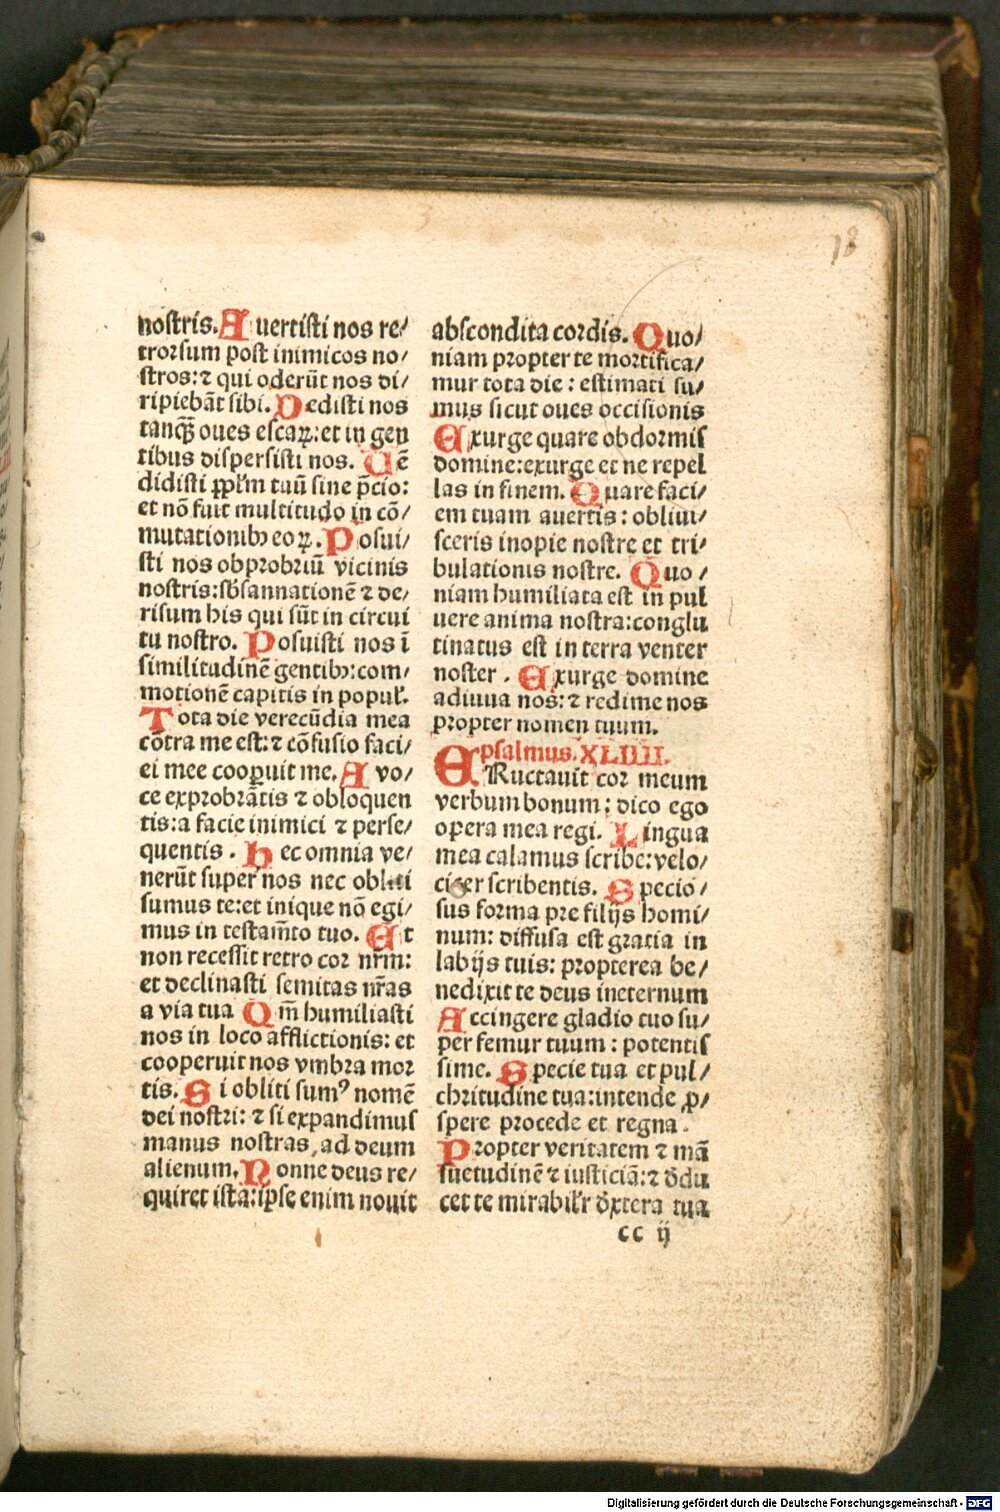 18
nostris. Auertisti nos re/
trorsum post inimicos no/
stros: ⁊ qui oderūt nos di/
ripiebāt sibi. Dedisti nos
tanqȝ oues escaꝝ: et in gen
tibus dispersisti nos. Uē
didisti ppl'm tuū sine p̄cio:
et nō fuit multitudo in cō/
mutationibꝫ eoꝝ. Posui/
sti nos obprobriū vicinis
nostris: sb̄sannationē ⁊ de/
risum his qui sūt in circui
tu nostro. Posuisti nos ī
similitudinē gentibꝫ: com/
motionē capitis in popul'.
Tota die verecūdia mea
cōtra me est: ⁊ cōfusio faci/
ei mee cooꝑuit me. A vo/
ce exprobrātis ⁊ obloquen
tis: a facie inimici ⁊ perse/
quentis. Hec omnia ve/
nerūt super nos nec obliti
sumus te: et inique nō egi/
mus in testam̄to tuo. Et
non recessit retro cor nr̄m:
et declinasti semitas nr̄as
a via tua Qm̄ humiliasti
nos in loco afflictionis: et
cooperuit nos vmbra mor
tis. Si obliti sumꝰ nomē
dei nostri: ⁊ si expandimus
manus nostras ad deum
alienum. Nonne deus re/
quiret ista: ipse enim nouit
abscondita cordis. Quo/
niam propter te mortifica/
mur tota die: estimati su/
mus sicut oues occisionis
Exurge quare obdormis
domine: exurge et ne repel
las in finem. Quare faci/
em tuam auertis: obliui/
sceris inopie nostre et tri/
bulationis nostre. Quo/
niam humiliata est in pul
uere anima nostra: conglu
tinatus est in terra venter
noster. Exurge domine
adiuua nos: ⁊ redime nos
propter nomen tuum.
psalmus. XLIIII.
ERuctauit cor meum
verbum bonum: dico ego
opera mea regi. Lingua
mea calamus scribe: velo/
citer scribentis. Specio/
sus forma pre filijs homi/
num: diffusa est gratia in
labijs tuis: propterea be/
nedixit te deus ineternum
Accingere gladio tuo su/
per femur tuum: potentis
sime. Specie tua et pul/
chritudine tua: intende ꝓ/
spere procede et regna.
Propter veritatem ⁊ mā
suetudinē ⁊ iusticiā: ⁊ d̄du
cet te mirabil'r d̄xtera tua
cc ij
Digitalisierung gefördert durch die Deutsche Forschungsgemeinschaft - DFG